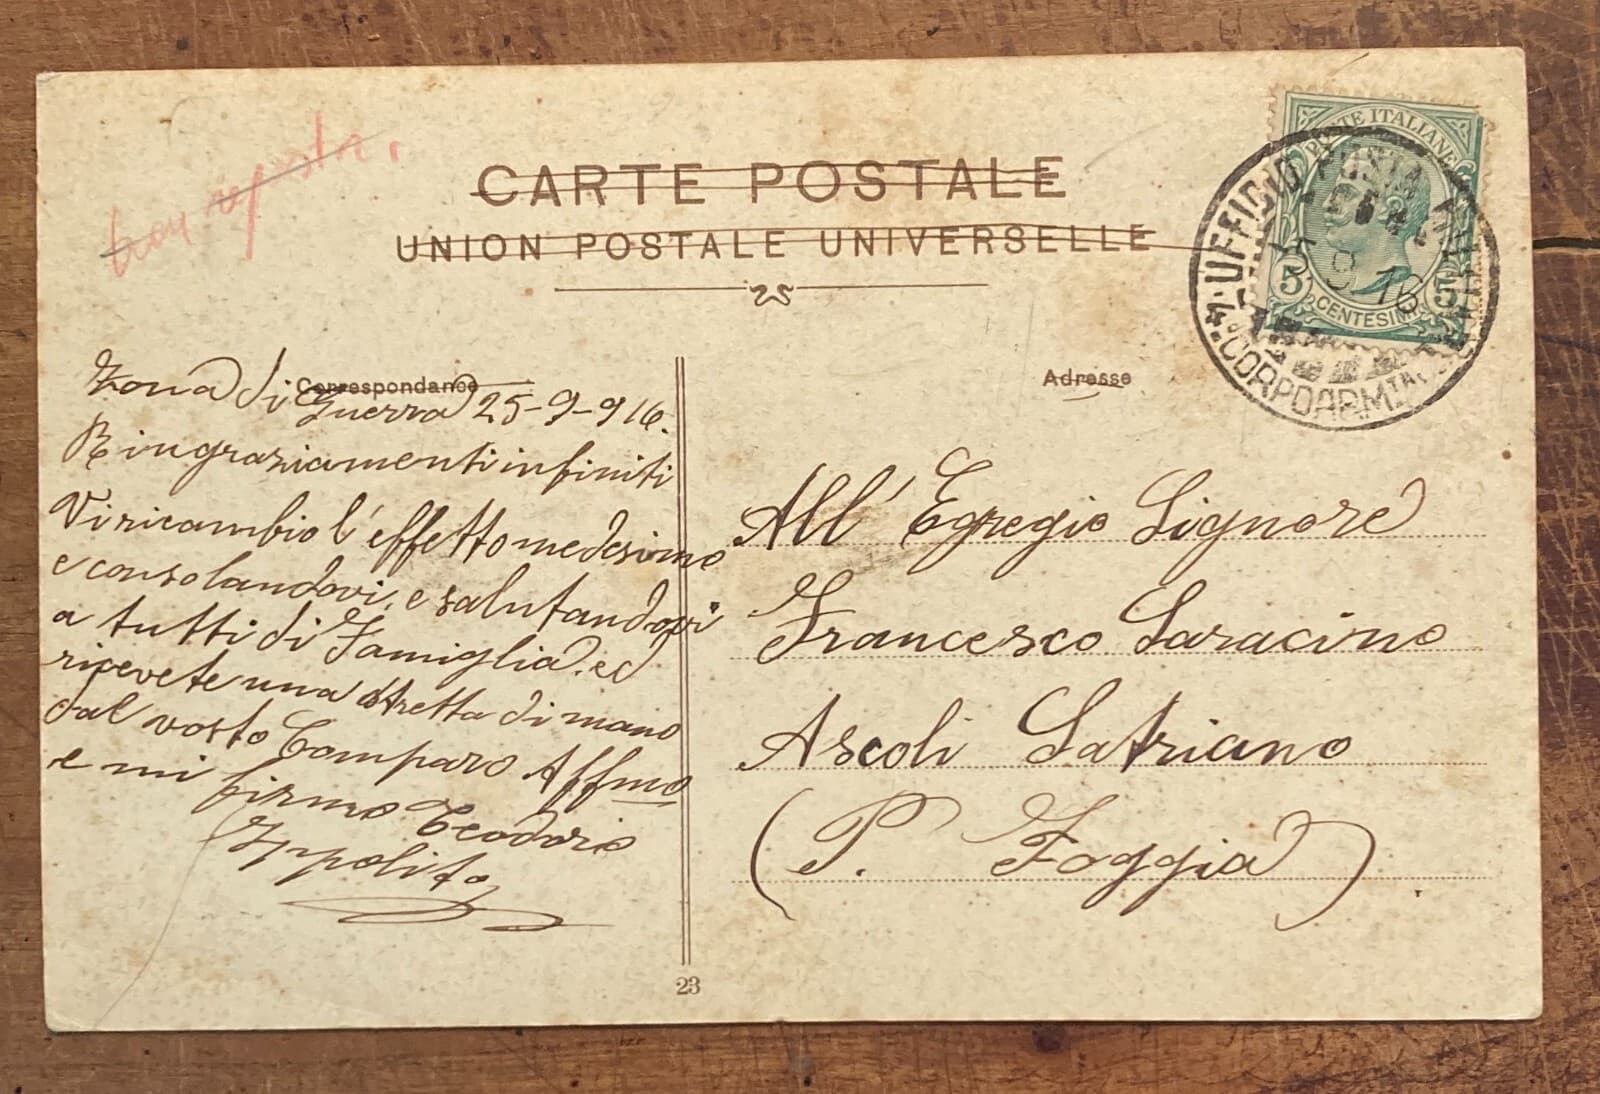 CARTE POSTALE
UNION POSTALE UNIVERSELLE
Correspondance
Adresse
POSTE ITALIANE
5 CENTESIMI 5
UFFICIO POSTA MILITARE
CORPO ARMATA
Zona di
Guerra 25-9-916.
Ringraziamenti infiniti
Vi ricambio l'effetto medesimo
e consolandovi, e salutandovi
a tutti di Famiglia. ed
ricevete una stretta di mano
dal vosto Comparo Affmo
e mi firmo Teodoro
Ippolito
All' Egregio Signore
Francesco Saracino
Ascoli Satriano
(P. Foggia)
23